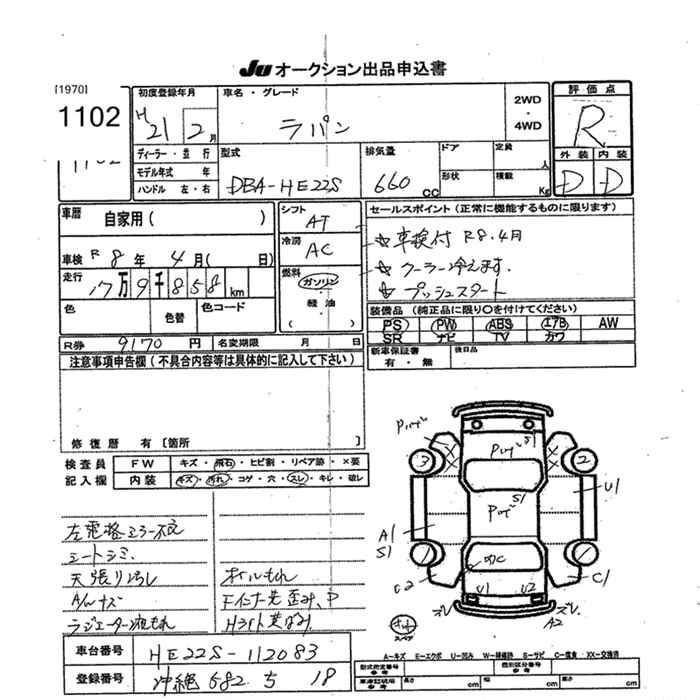 JU オークション出品申込書
[1970]
1102
初度登録年月
H21 2月
車名・グレード
ラパン
2WD
・
4WD
評価点
R
ディーラー・並行
モデル年式 年
ハンドル 左・右
型式
DBA-HE22S
排気量
660 CC
ドア
形状
定員
人
積載
Kg
外装 内装
D D
車歴 自家用( )
シフト AT
セールスポイント(正常に機能するものに限ります)
車検 R8年 4月( 日)
冷房 AC
☆車検付 R8.4月
☆クーラー冷えます.
☆プッシュスタート
走行 17万9千858 km
燃料
ガソリン
・
軽油
( )
色 色替 色コード
装備品(純正品に限り○を付けてください)
PS PW ABS エアB AW
SR ナビ TV カワ
R券 9170 円
名変期限 月 日
新車保証書
有・無
後日品
注意事項申告欄(不具合内容等は具体的に記入して下さい)
修復歴 有[箇所 ]
検査員 FW キズ・飛石・ヒビ割・リペア跡・×要
記入欄 内装 キズ・汚れ・コゲ・穴・スレ・キレ・破レ
左電格ミラー不良
シートシミ
天張り汚し
オイルもれ
A/nキズ
Fインナー先歪み、P
ラジエーター液もれ
3
2
S1
S1
U1
A1
S1
C2
U1
U2
C1
A2
スペア
車台番号 HE22S-112083
登録番号 沖縄 582 ち 18
A-キズ E-エクボ U-凹み W-補修跡 S-サビ C-腐食 XX-交換済
型式指定番号
参考
類別区分番号
参考
車庫証明用
参考
長さ cm 幅 cm 高さ cm